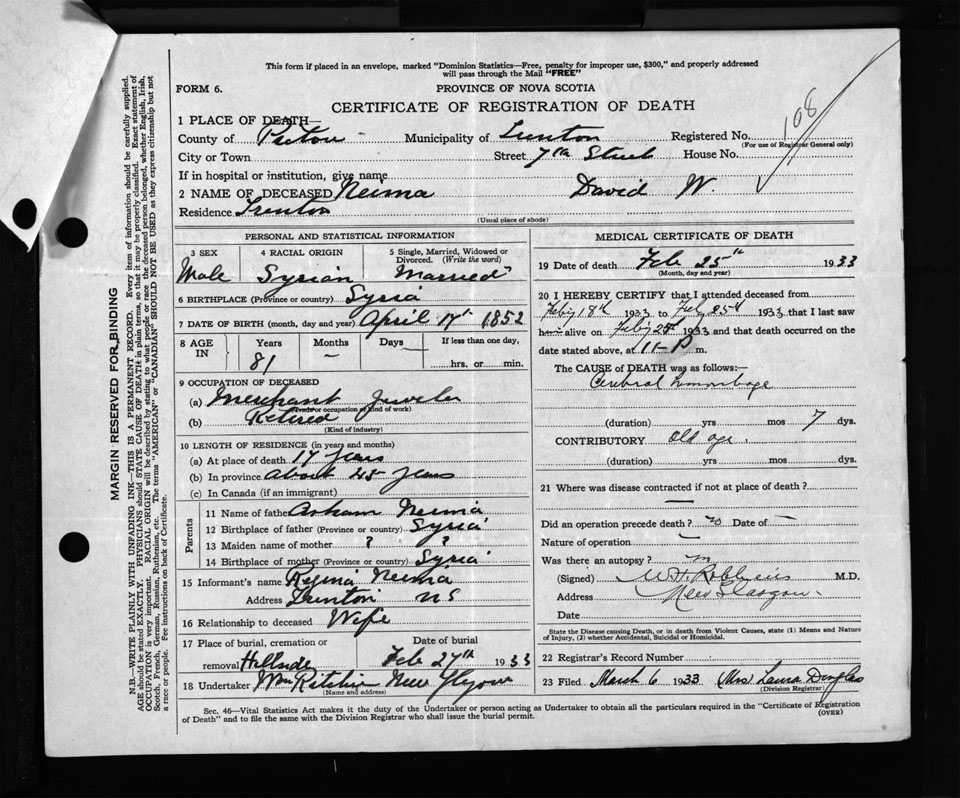 This form if placed in an envelope, marked "Dominion Statistics—Free, penalty for improper use, $300," and properly addressed
will pass through the Mail "FREE"
FORM 6.
PROVINCE OF NOVA SCOTIA
CERTIFICATE OF REGISTRATION OF DEATH
108
1 PLACE OF DEATH—
County of Pictou Municipality of Trenton Registered No.
(For use of Registrar General only)
City or Town Street 7th Street House No.
If in hospital or institution, give name
2 NAME OF DECEASED Neima David W.
Residence Trenton
(Usual place of abode)
PERSONAL AND STATISTICAL INFORMATION
3 SEX 4 RACIAL ORIGIN 5 Single, Married, Widowed or Divorced. (Write the word)
Male Syrian Married
6 BIRTHPLACE (Province or country) Syria
7 DATE OF BIRTH (month, day and year) April 17th 1852
8 AGE IN Years Months Days If less than one day,
81 — hrs. or min.
9 OCCUPATION OF DECEASED
(a) Merchant Jeweler
(Trade or occupation or kind of work)
(b) Retired
(Kind of industry)
10 LENGTH OF RESIDENCE (in years and months)
(a) At place of death 17 years
(b) In province about 45 years
(c) In Canada (if an immigrant)
Parents
11 Name of father Neima
12 Birthplace of father (Province or country) Syria
13 Maiden name of mother ? ?
14 Birthplace of mother (Province or country) Syria
15 Informant's name Neima
Address Trenton NS
16 Relationship to deceased Wife
17 Place of burial, cremation or Date of burial
removal Hillside Feb 27th 1933
18 Undertaker Wm Ritchie New Glasgow
(Name and address)
MEDICAL CERTIFICATE OF DEATH
19 Date of death Feb 25th 1933
(Month, day and year)
20 I HEREBY CERTIFY that I attended deceased from
18th 1933 to 25th 1933 that I last saw
h alive on 25th 1933 and that death occurred on the
date stated above, at 11-P m.
The CAUSE of DEATH was as follows:—
Cerebral hemorrhage
(duration) yrs mos 7 dys.
CONTRIBUTORY old age.
(duration) yrs. mos. dys.
21 Where was disease contracted if not at place of death?
—
Did an operation precede death? no Date of —
Nature of operation —
Was there an autopsy? no
(Signed) M.D.
Address New Glasgow
Date
State the Disease causing Death, or in death from Violent Causes, state (1) Means and Nature
of Injury, (2) whether Accidental, Suicidal or Homicidal.
22 Registrar's Record Number
23 Filed March 6 1933 Mrs Laura Douglas
(Division Registrar)
Sec. 46—Vital Statistics Act makes it the duty of the Undertaker or person acting as Undertaker to obtain all the particulars required in the "Certificate of Registration
of Death" and to file the same with the Division Registrar who shall issue the burial permit.
(OVER)
MARGIN RESERVED FOR BINDING
N.B.—WRITE PLAINLY WITH UNFADING INK—THIS IS A PERMANENT RECORD. Every item of information should be carefully supplied.
AGE should be stated EXACTLY. PHYSICIANS should STATE CAUSE OF DEATH in plain terms, so that it may be properly classified. Exact statement of
OCCUPATION is very important. RACIAL ORIGIN will be described by stating to what people or race the deceased person belonged, whether English, Irish,
Scotch, French, German, Russian, Ruthenian, etc. The terms "AMERICAN" or "CANADIAN" SHOULD NOT BE USED as they express citizenship but not
a race or people. See instructions on back of Certificate.